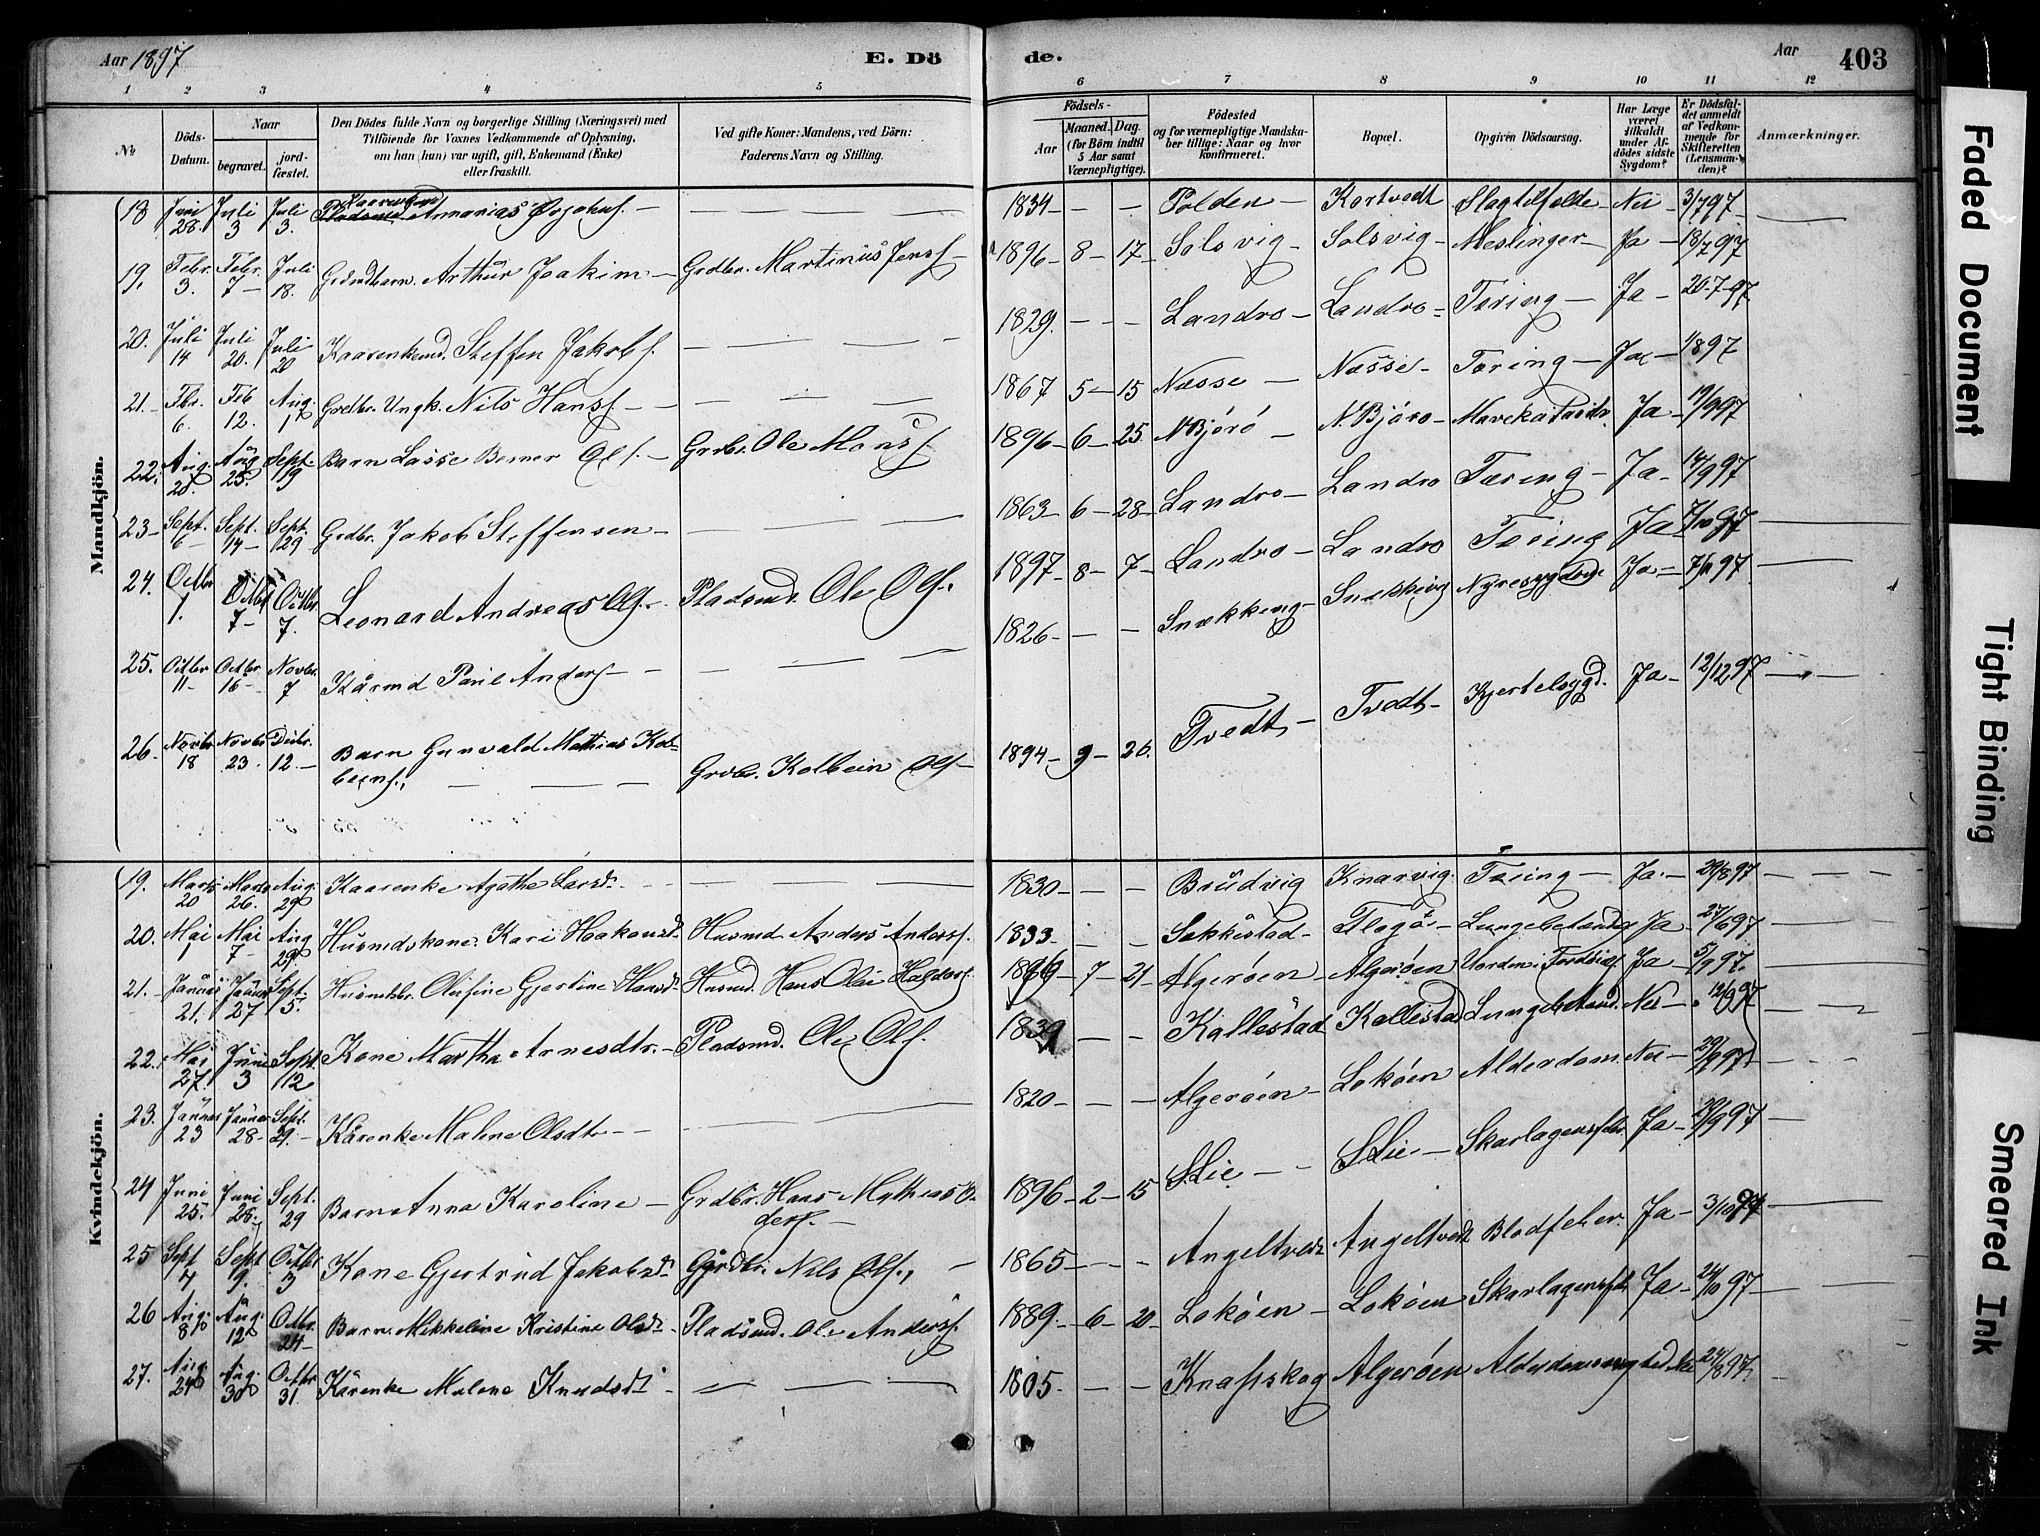 Aar 1897
E. Dö
de.
Aar
403
1 2 3 4 5 6 7 8 9 10 11 12
№
Döds-Datum.
Naar
begravet.
jord-fæstet.
Den Dödes fulde Navn og borgerlige Stilling (Næringsvei) med
Tilföiende for Voxnes Vedkommende af Oplysning,
om han (hun) var ugift, gift, Enkemand (Enke)
eller fraskilt.
Ved gifte Koner: Mandens, ved Börn:
Faderens Navn og Stilling.
Födsels-
Aar
Maaned. Dag.
(for Börn indtil
5 Aar samt
Værnepligtige).
Födested
og for værnepligtige Mandska-
ber tillige: Naar og hvor
konfirmeret.
Bopæl.
Opgiven Dödsaarsag.
Har Læge
været
tilkaldt
under Af-
dödes sidste
Sygdom?
Er Dödsfal-
det anmeldt
af Vedkom-
mende for
Skifteretten
(Lensman-
den)?
Anmærkninger.
Mandkjön.
18 Juni 28 Juli 3 Juli 3. Ananias — — — 1834 — — Polden — Kortvedt Slagtilfælde — Nei — 3/7 97
19. Febr. 3. Febr. 7 — Juli 18. Grdmdbarn. Arthur Joakim — Grdbr. Martinus Jensf — 1896 — 8 — 17 — Solsvig — Solsvig — Meslinger — Ja — 18/7 97
20. Juli 14 Juli 20. Juli 20 Kaarenkemd. Steffen Jakobf. — — — 1829. — — — Landro — Landro — Tæring — Ja — 20-7-97
21. — Fbr. 6. Feb 12. Aug. 1 Grdbr. Ungk. Nils Hansf. — — — 1867 5 — 15 Næsse — Næsse — Tæring — Ja — 1/8 97
22. Aug. 20. Aug 25. Sept. 19 Barn Lasse Berner Olf. — Grdbr. Ole Monsf. 1896 — 6 — 25. N Bjørø — N. Bjørø — Ja — 19/9 97
23 — Sept. 6 — Sept. 14 — Sept 29 Grdbr. Jakob Steffensen — — — 1863 — 6 — 28 — Landro — Landro Tæring — Ja —
24. Octbr 1. Octbr 7 — Octbr. 7. Leonard Andreas Olf. — Pladsmd. Ole Olf. 1897 — 8 — 7 — Landro — Landro Tæring Ja 7/10 97
25. Octbr 11 — Octbr. 16 — Novbr. 7 Kårmd Poul Andersf — — — 1826 — — — Snekkevig Nyresygdom Ja — 7/11 97
26. Novbr 18 Novbr 23. Decbr. 12. — Barn Gunvald Mathias Kol-
beinf., — — — Grdbr. Kolbein Olf — 1894 — 9 — 26. Tvedt — Tvedt — Kjertelsygd. Ja — 12/12 97 —
Kvindekjön.
19. Marts 20 Marts 26. Aug. 29 Kaarenke Agathe Larsdt. — — — 1830 — — — Brudvig Knarvig. Tæring — Ja. — 29/8 97 — — —
20. Mai 1 Mai 7 — Aug 29 Husmdskone Kari Hakonsdt. Husmd Anders Andersf. 1833 — — — Sekkestad — Flagø — Lungebetændelse Ja
21. — Januar 21. Januar 27 Sept. 5. Husmdsbr. Olufine Gjertine Hansdt. Husmd. Hans Olai Haldorsf. — 7 — 21 — Algerøen — Algerøen Ja — 5/9 97.
22. Mai 27. Juni 3 Sept. 12 Kone Martha Arnesdtr. — Pladsmd. Ole Olf. 1839 — — Kallestad Kallestad Lungebetænd. Nei — 12/9 97
23. Januar 23 Januar 28 — Sept. 29. — Kårenke Malene Olsdt — — 1820 — — — Algerøen — Lokøen Alderdom — Nei — 29/9 97 — — —
24 Juni 25. Juni 28. Sept. 29 Barn Anna Karoline — Grdbr. Hans Mathias An-
dersf. — 1896 — 2 — 15 S Lie — — S Lie — Skarlagensfeber Ja — 29/9 97 —
25 Sept 4 Sept 9. Octbr 3 Kone Gjertrud Jakobsdt Grdbr. Nils Olf., — 1865 — — — Angeltvedt Angeltvedt Blodfeber. Ja — 3/10 97
26 Aug. 8 Aug. 12 Octbr. 24 — Barn Mikkeline Kristine Olsdt Pladsmd. Ole Andersf. 1889. — 6 — 20 — Lokøen — Lokøen Skarlagensfeb Ja — 24/10 97 —
27. Aug. 24 Aug. 30 Octbr 31. Kårenke Malene Knudsdt. — — — 1805. — — Knapskog Algerøen Nei
Faded Document
Tight Binding
Smeared Ink